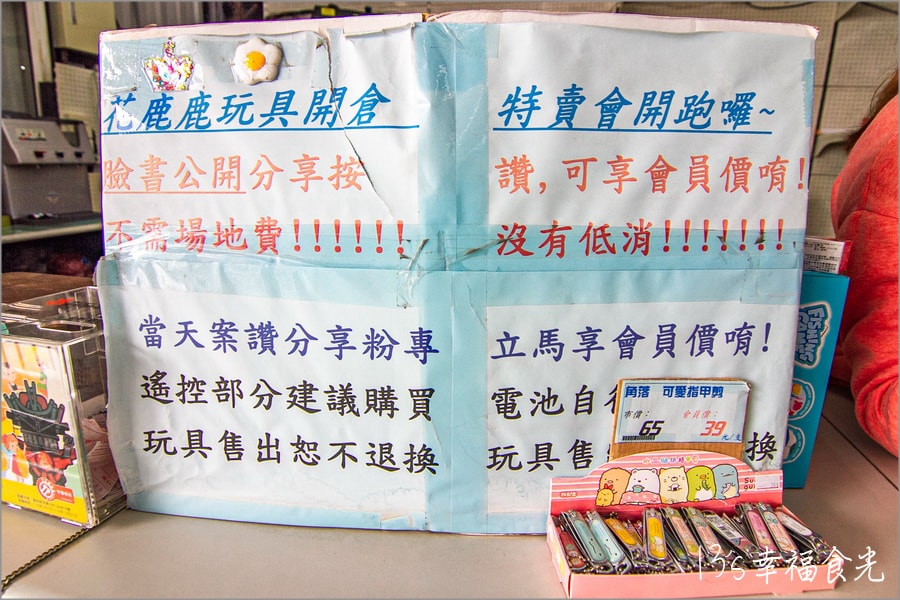 花鹿鹿玩具開倉 特賣會開跑囉~
臉書公開分享按 讚,可享會員價唷!
不需場地費!!!!!! 沒有低消!!!!!!!
當天案讚分享粉專 立馬享會員價唷!
遙控部分建議購買 電池自
玩具售出恕不退換 玩具售 換
角落 可愛指甲剪
市價: 會員價:
65 39元/支
FISHING GAME
13's幸福食光